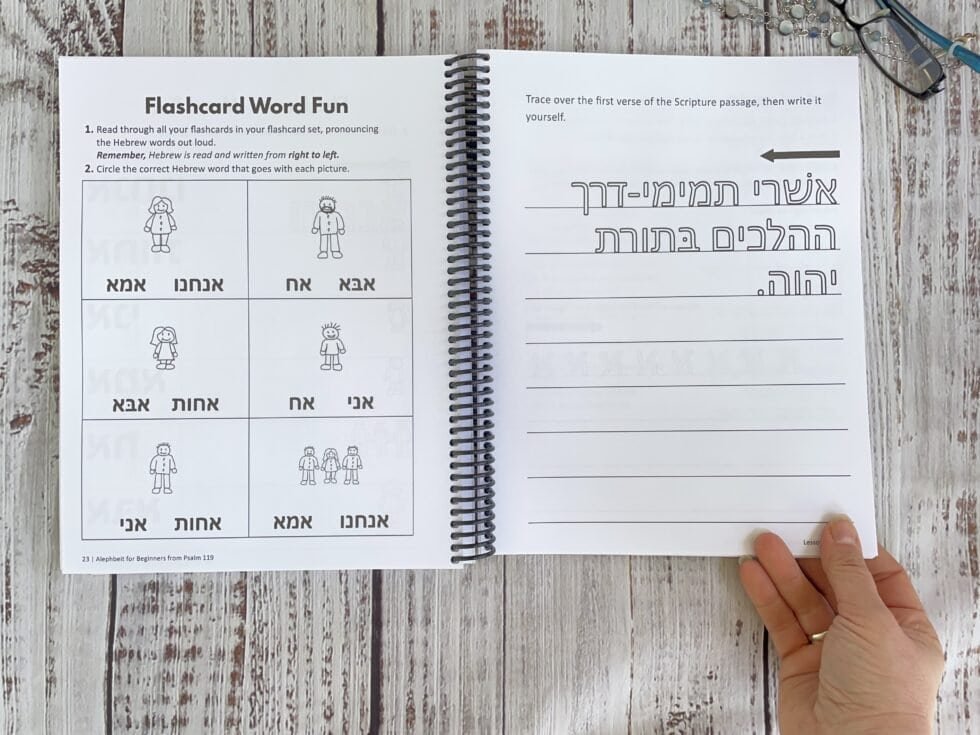 Flashcard Word Fun
1. Read through all your flashcards in your flashcard set, pronouncing
the Hebrew words out loud.
Remember, Hebrew is read and written from right to left.
2. Circle the correct Hebrew word that goes with each picture.
אנחנו אמא
אבּא אח
אחות אבּא
אני אח
אחות אני
אנחנו אמא
23 | Alephbeit for Beginners from Psalm 119
Trace over the first verse of the Scripture passage, then write it
yourself.
אשׁרי תמימי-דרך
ההלכים בּתורת
יהוה.